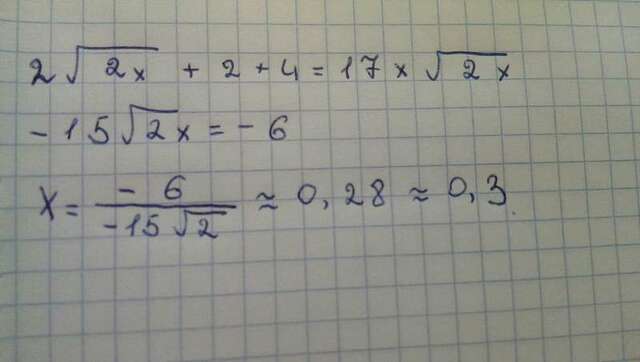 2 √2x + 2 + 4 = 17 x √2x
- 15 √2 x = - 6
X = - 6 / -15 √2 ≈ 0,28 ≈ 0,3.